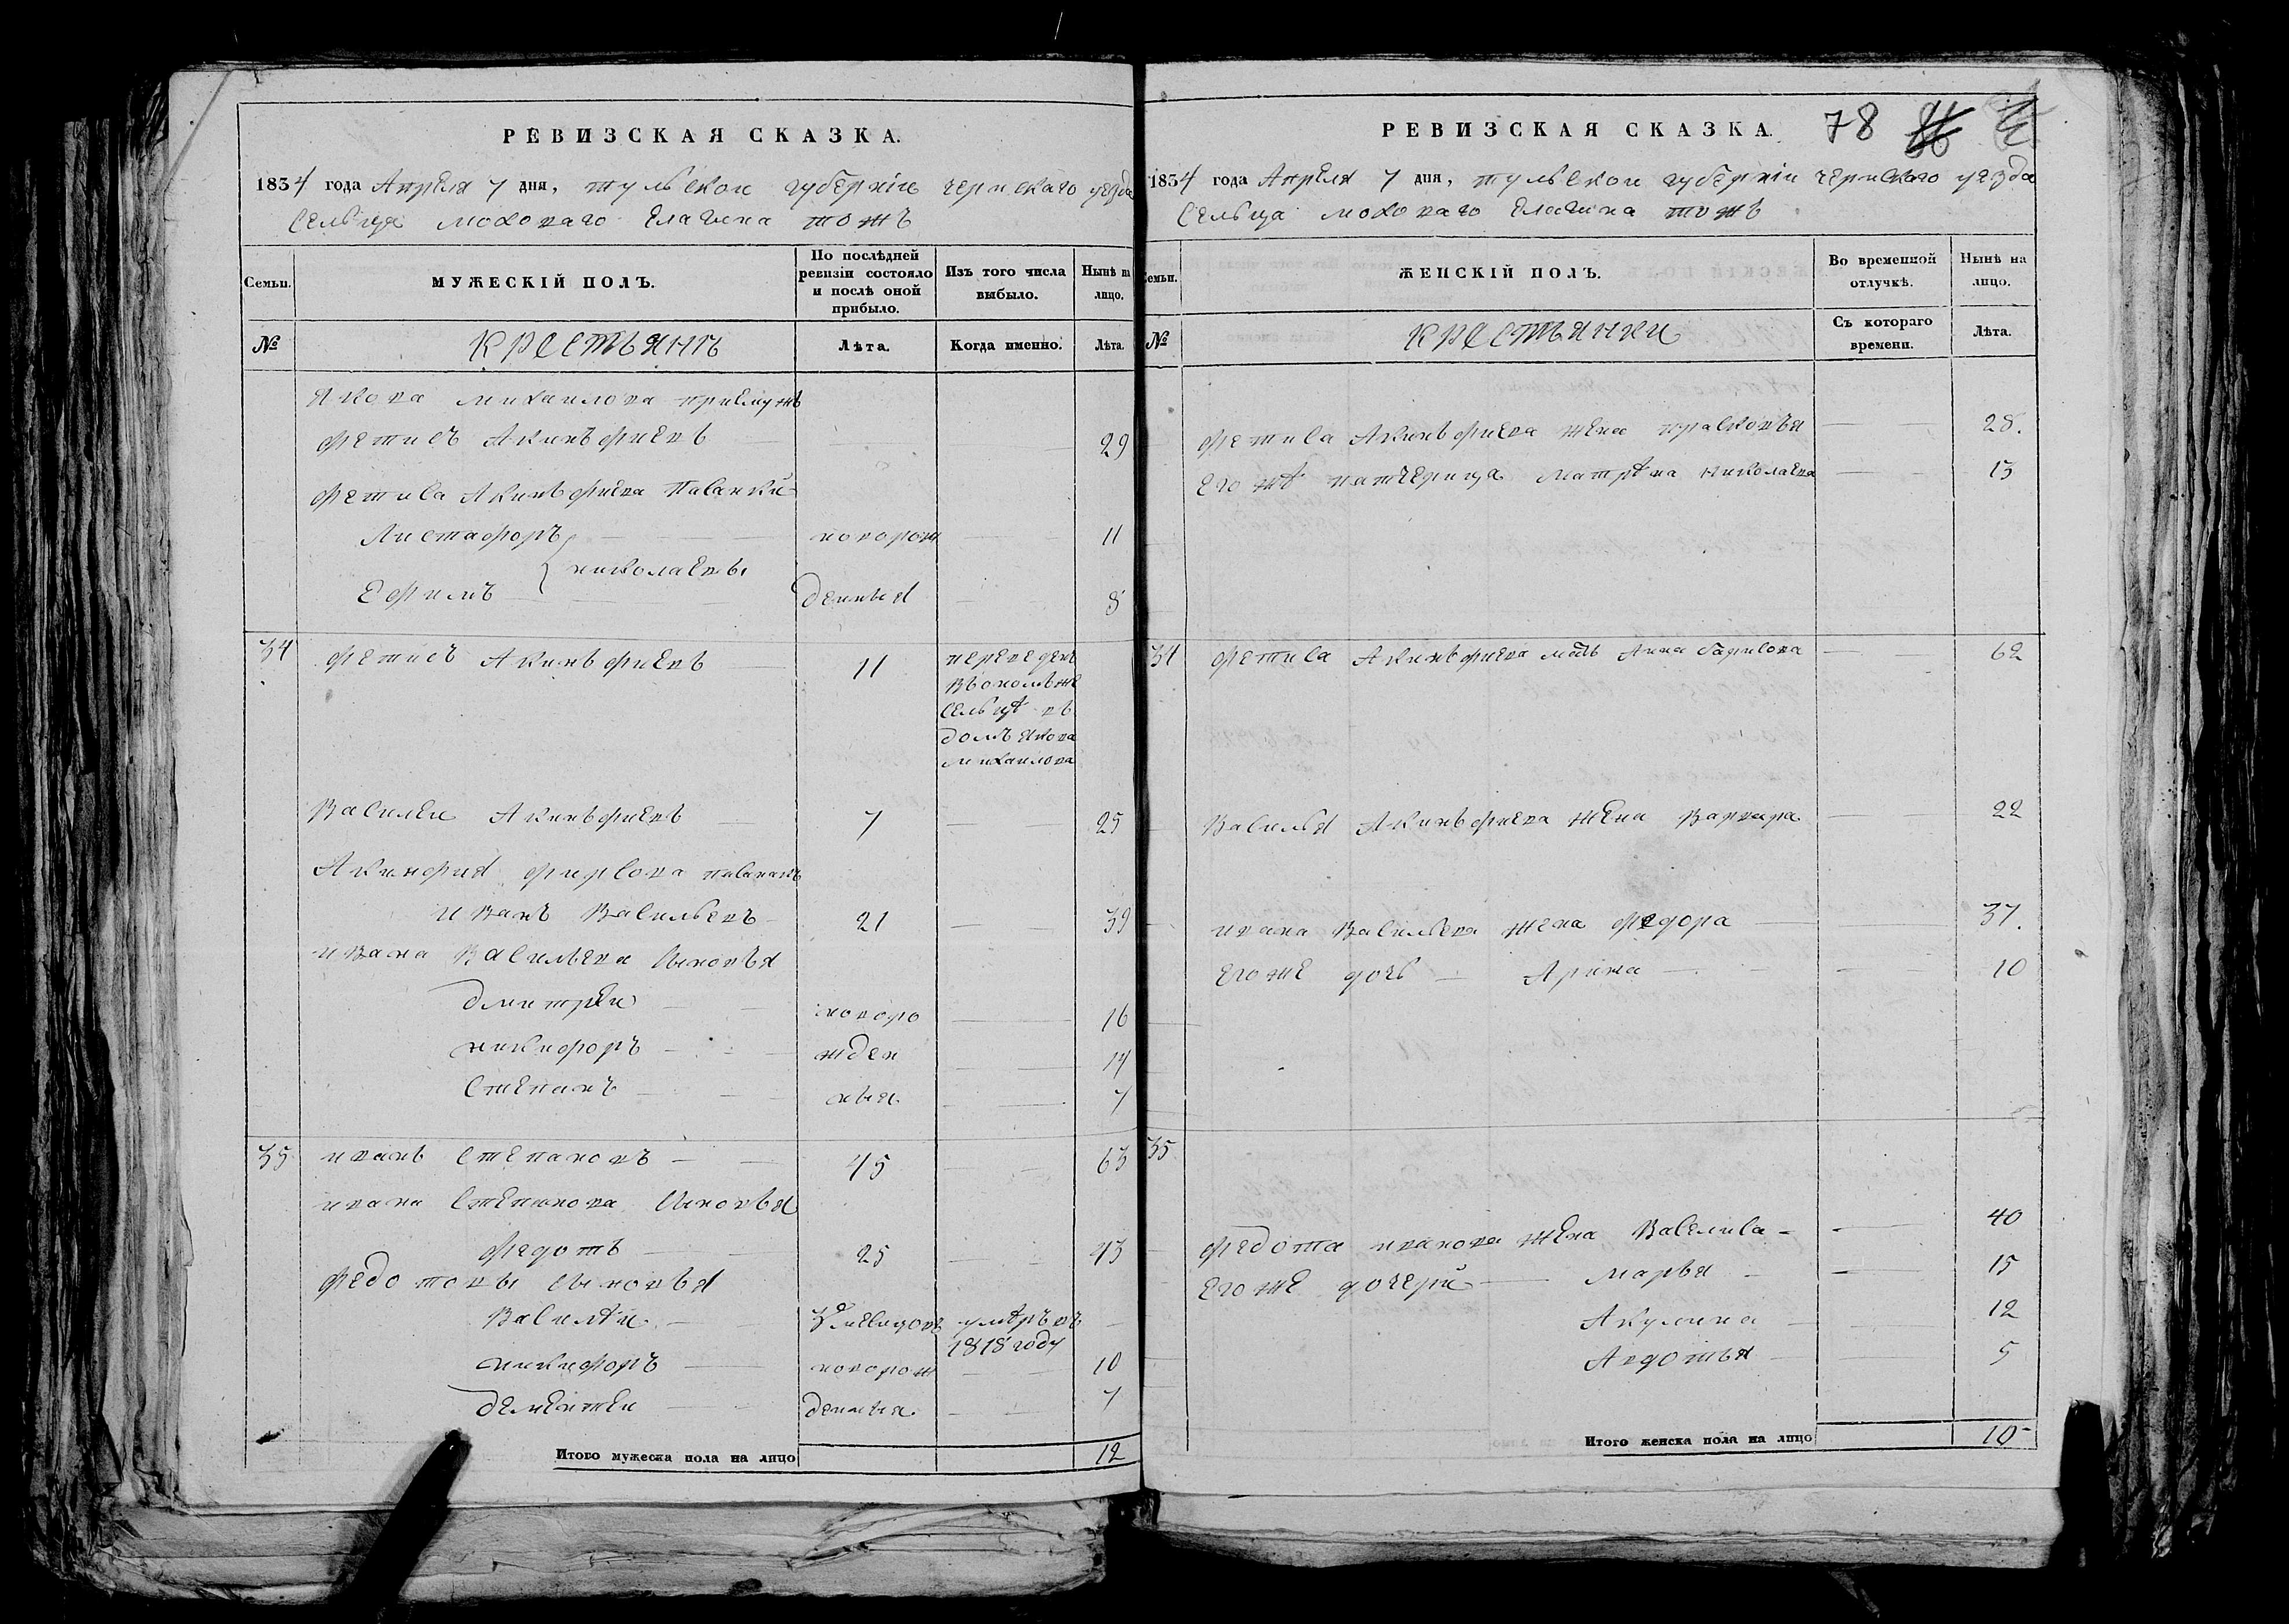 РЕВИЗСКАЯ СКАЗКА.
1834 года Апреля 7 дня, тульскои губернiи чернскаго уезда
Сельца моховаго Елагина тожъ
Семьи.
МУЖЕСКІЙ ПОЛЪ.
По послѣдней ревизіи состояло и послѣ оной прибыло.
Изъ того числа выбыло.
Нынѣ на лицо.
№
крестьянѣ
Лѣта.
Когда именно.
Лѣта.
Якова михаилова приемужъ
фетисъ Акинъфиевъ 29
фетиса Акинъфиева Пасанки
Листафоръ новорож 11
николаевы
Ефимъ денныя 8
34 фетисъ Акинъфиевъ 11 переведенъ
въономъже
сельцѣ въ
домъ якова
михаилова
Василеи Акинъфиевъ 7 25
Акинфия фирсова пасанакъ
иванъ Васильевъ 21 39
ивана Васильева сыновья
дмитреи новоро 16
никифоръ жден 14
степанъ ныя 7
35 иванъ степановъ 45 63
ивана степанова сыновья
федотъ 25 43
федотовы сыновья
Василѣи 3 месецовъ умѣръ въ
1818 году
никифоръ новорож 10
дементеи денныя 7
Итого мужеска пола на лицо 12
РЕВИЗСКАЯ СКАЗКА. 78
1834 года Апреля 7 дня, тульскои губернiи чернскаго уезда
Сельца моховаго Елагина тожъ
Семьи.
ЖЕНСКІЙ ПОЛЪ.
Во временной отлучкѣ.
Нынѣ на лицо.
№
крестьянки
Съ котораго времени.
Лѣта.
фетиса Акинъфиева жена прасковья 28.
его жѣ патчерица матрѣна николаева 13
34 фетиса Акинъфиева мать Анна Гаврилова 62
Василья Акинъфиева жена Варвара 22
ивана Васильева жена федора 37.
егоже дочь Арина 10
35
федота иванова жена Васелиса 40
егоже дочери марья 15
Акулина 12
Авдотья 5
Итого женска пола на лицо 10